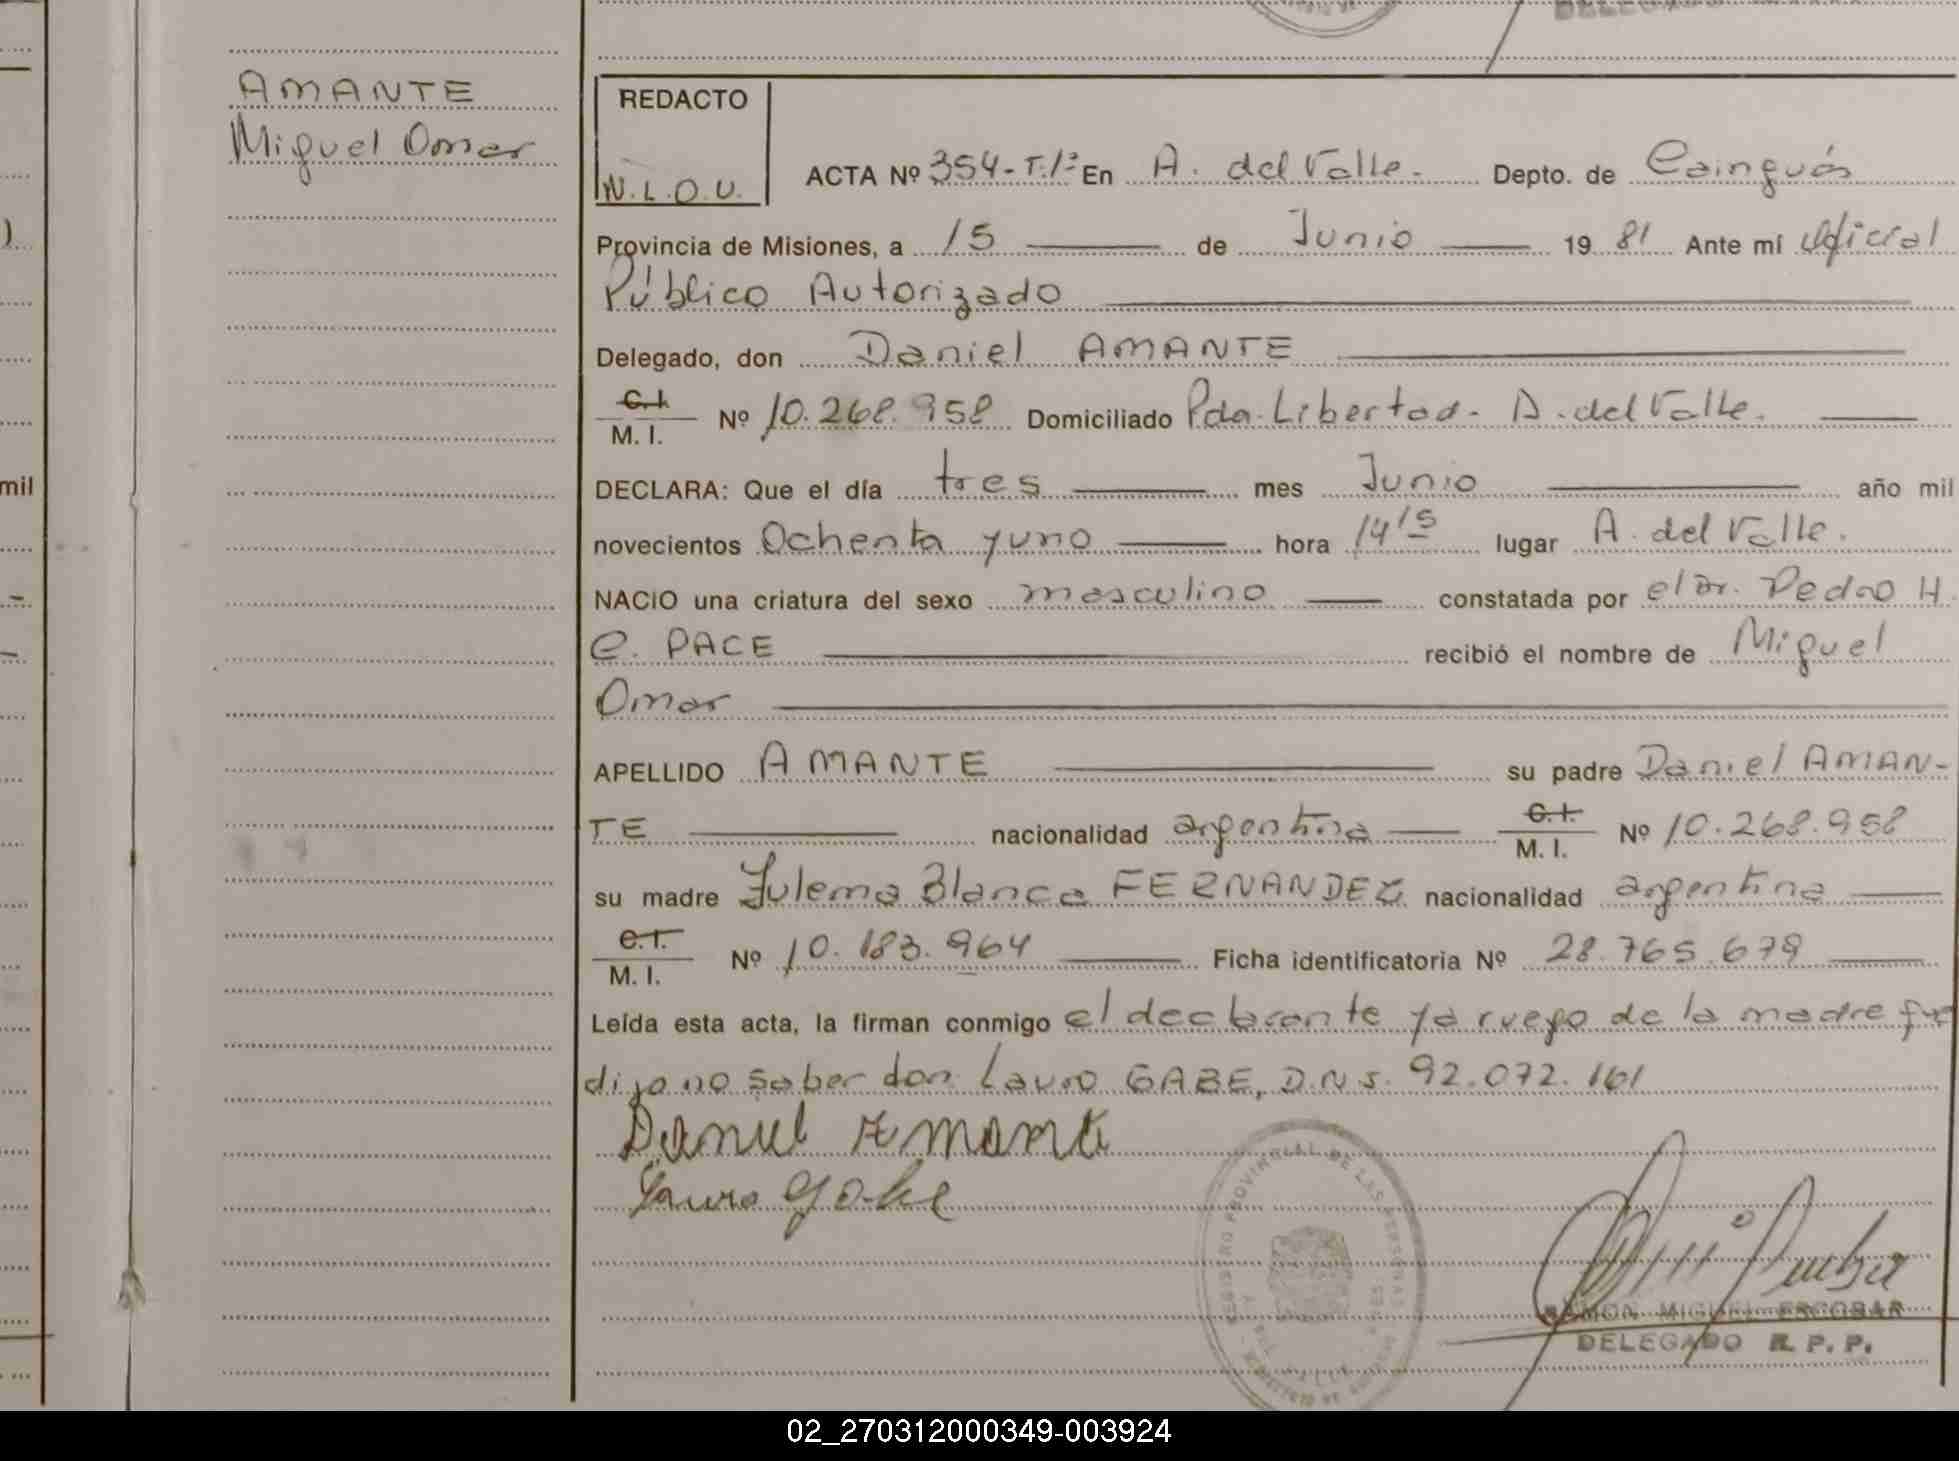 AMANTE
Miguel Omar
REDACTO
N.L.O.U.
ACTA Nº 354-T.1º En A. del Valle. Depto. de Cainguás
Provincia de Misiones, a 15 de Junio 19 81 Ante mí Oficial
Público Autorizado
Delegado, don Daniel AMANTE
C.I. M. I. Nº 10.268.958 Domiciliado Pda. Libertad - A. del Valle.
mil
DECLARA: Que el día tres mes Junio año mil
novecientos Ochenta y uno hora 14 15 lugar A. del Valle.
NACIO una criatura del sexo masculino constatada por el Dr. Pedro H.
C. PACE recibió el nombre de Miguel
Omar
APELLIDO AMANTE su padre Daniel AMAN-
TE nacionalidad argentina C.I. M. I. Nº 10.268.958
su madre Zulema Blanca FERNANDEZ nacionalidad argentina
C.I. M. I. Nº 10.183.964 Ficha identificatoria Nº 28.765.679
Leída esta acta, la firman conmigo el declarante y a ruego de la madre que
dijo no saber don Lauro GABE, D.N.I. 92.072.161
Daniel Amante
Lauro Gabe
REGISTRO PROVINCIAL DE LAS PERSONAS
RAMON MIGUEL ESCOBAR
DELEGADO R. P. P.
02_270312000349-003924